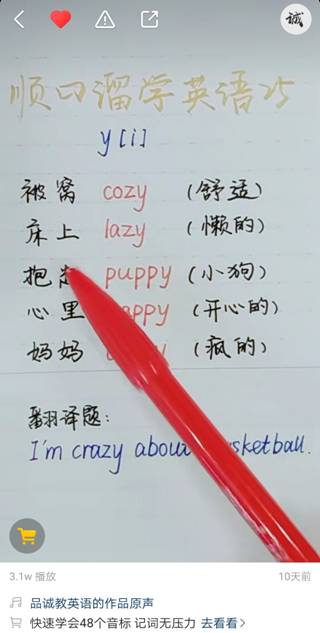 诚
顺口溜学英语25
y [i]
被窝 cozy (舒适)
床上 lazy (懒的)
抱 puppy (小狗)
心里 (开心的)
妈妈 (疯的)
翻译题:
I'm crazy about
3.1w 播放 10天前
品诚教英语的作品原声
快速学会48个音标 记词无压力 去看看>